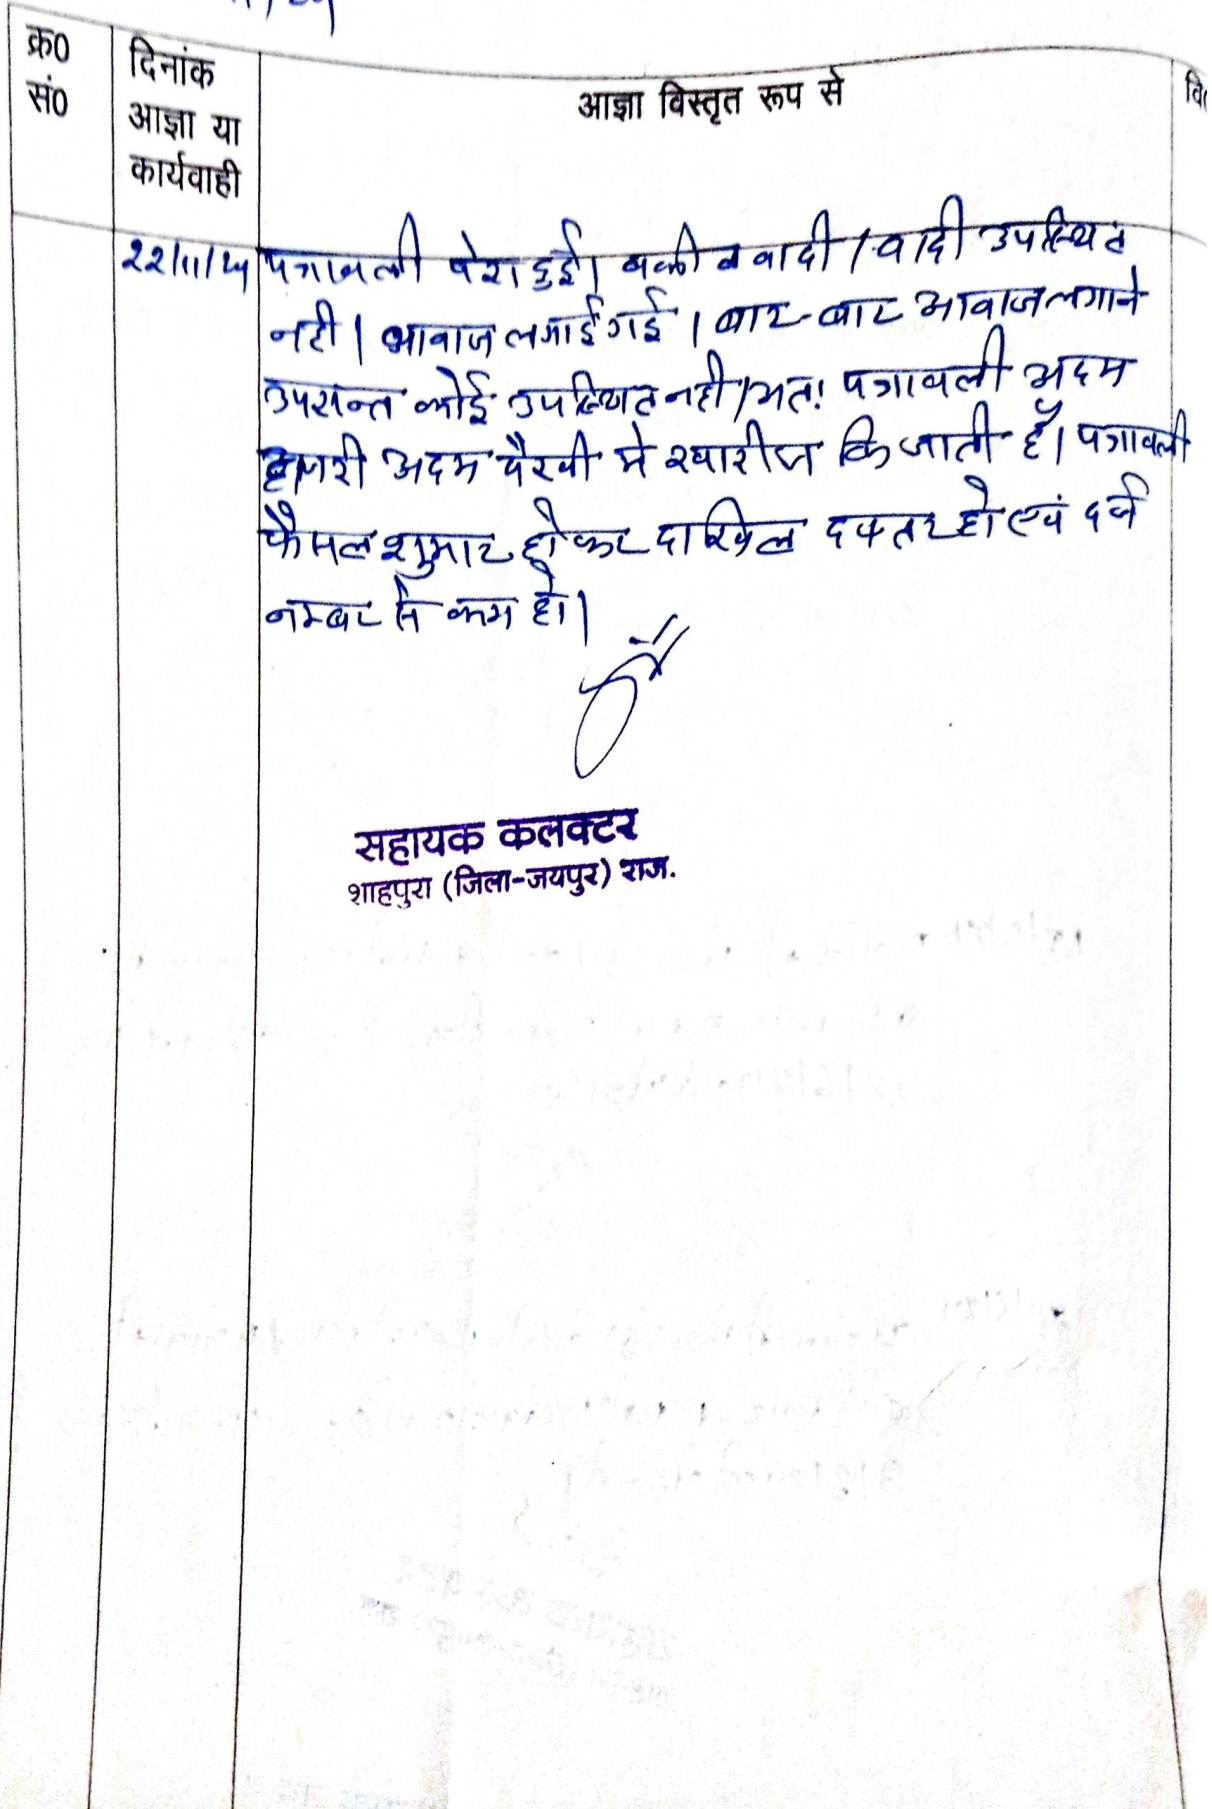 क्र0
सं0
दिनांक
आज्ञा या
कार्यवाही
आज्ञा विस्तृत रूप से
22/11/24 पत्रावली पेश हुई। वकील वादी / वादी उपस्थित
नही। आवाज लगाई गई। बार-बार आवाज लगाने
उपरान्त कोई उपस्थित नही। अतः पत्रावली अदम
हाजरी अदम पैरवी मे खारीज कि जाती है। पत्रावली
फैसल शुमार होकर दाखिल दफ्तर हो एवं दर्ज
नम्बर से कम हो।
सहायक कलक्टर
शाहपुरा (जिला-जयपुर) राज.